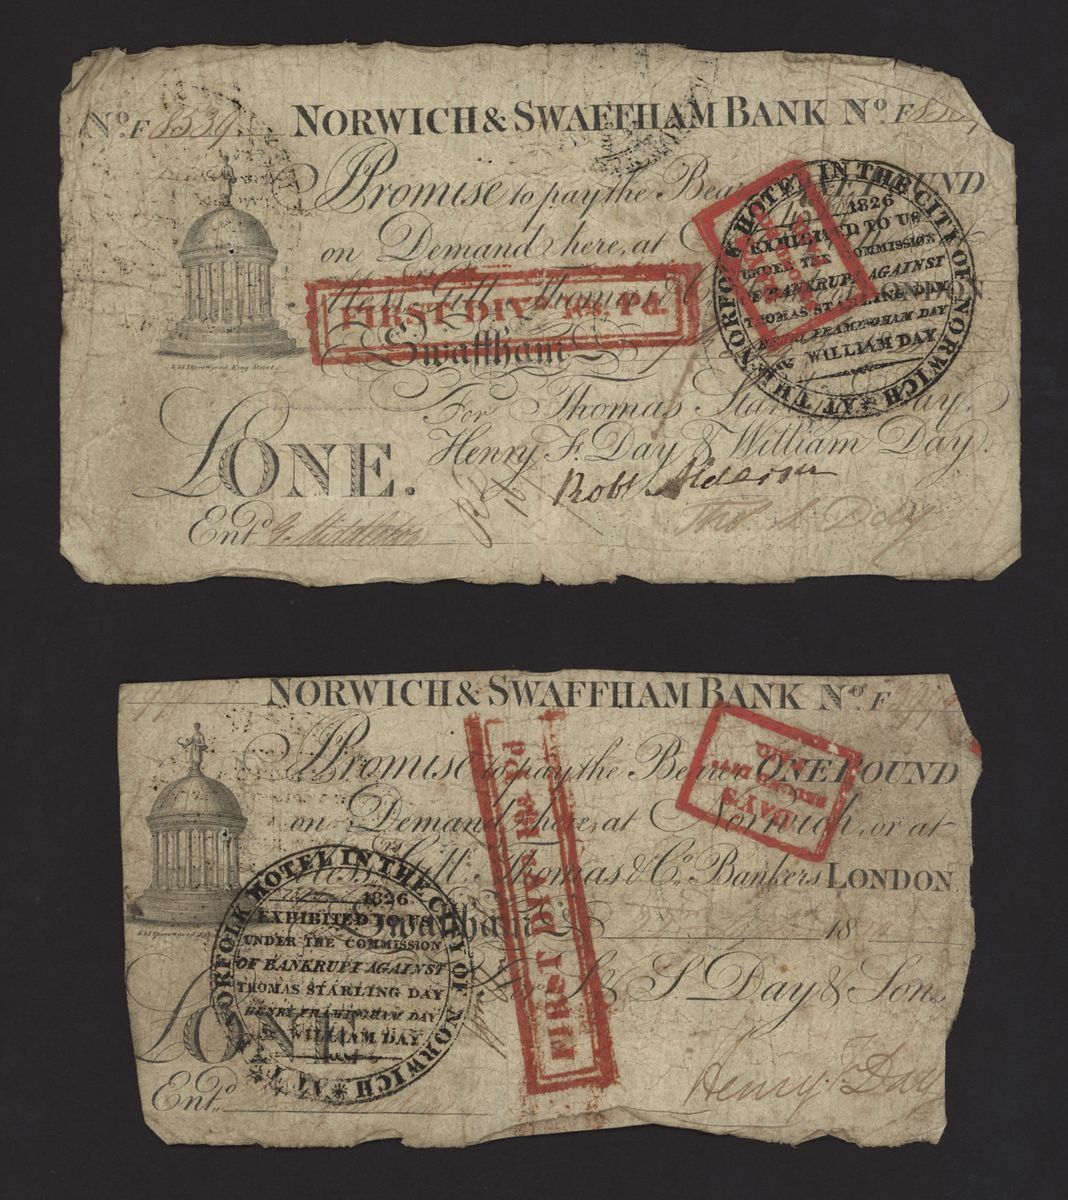 No. F 8539 NORWICH & SWAFFHAM BANK No. F
Promise to pay the Bearer ONE POUND
on Demand here, at
Messrs. Gill, Thomas & Co. LONDON
Swaffham
For Thomas Starling Day,
Henry F. Day & William Day.
£ONE.
Robt Alderson
Thos S. Day
Entd. G. Middleton
FIRST DIVd Pd.
AT THE NORFOLK HOTEL IN THE CITY OF NORWICH
1826
EXHIBITED TO US
UNDER THE COMMISSION
OF BANKRUPT AGAINST
THOMAS STARLING DAY
HENRY FRAMINGHAM DAY
& WILLIAM DAY
NORWICH & SWAFFHAM BANK No. F
Promise to pay the Bearer ONE POUND
on Demand here, at Norwich, or at
Messrs. Gill, Thomas & Co. Bankers LONDON
Swaffham
18
For S. & S. Day & Sons
£ONE
Henry F Day
Entd.
FIRST DIVd Pd.
DAYS
SECOND DIVd
AT THE NORFOLK HOTEL IN THE CITY OF NORWICH
1826
EXHIBITED TO US
UNDER THE COMMISSION
OF BANKRUPT AGAINST
THOMAS STARLING DAY
HENRY FRAMINGHAM DAY
& WILLIAM DAY